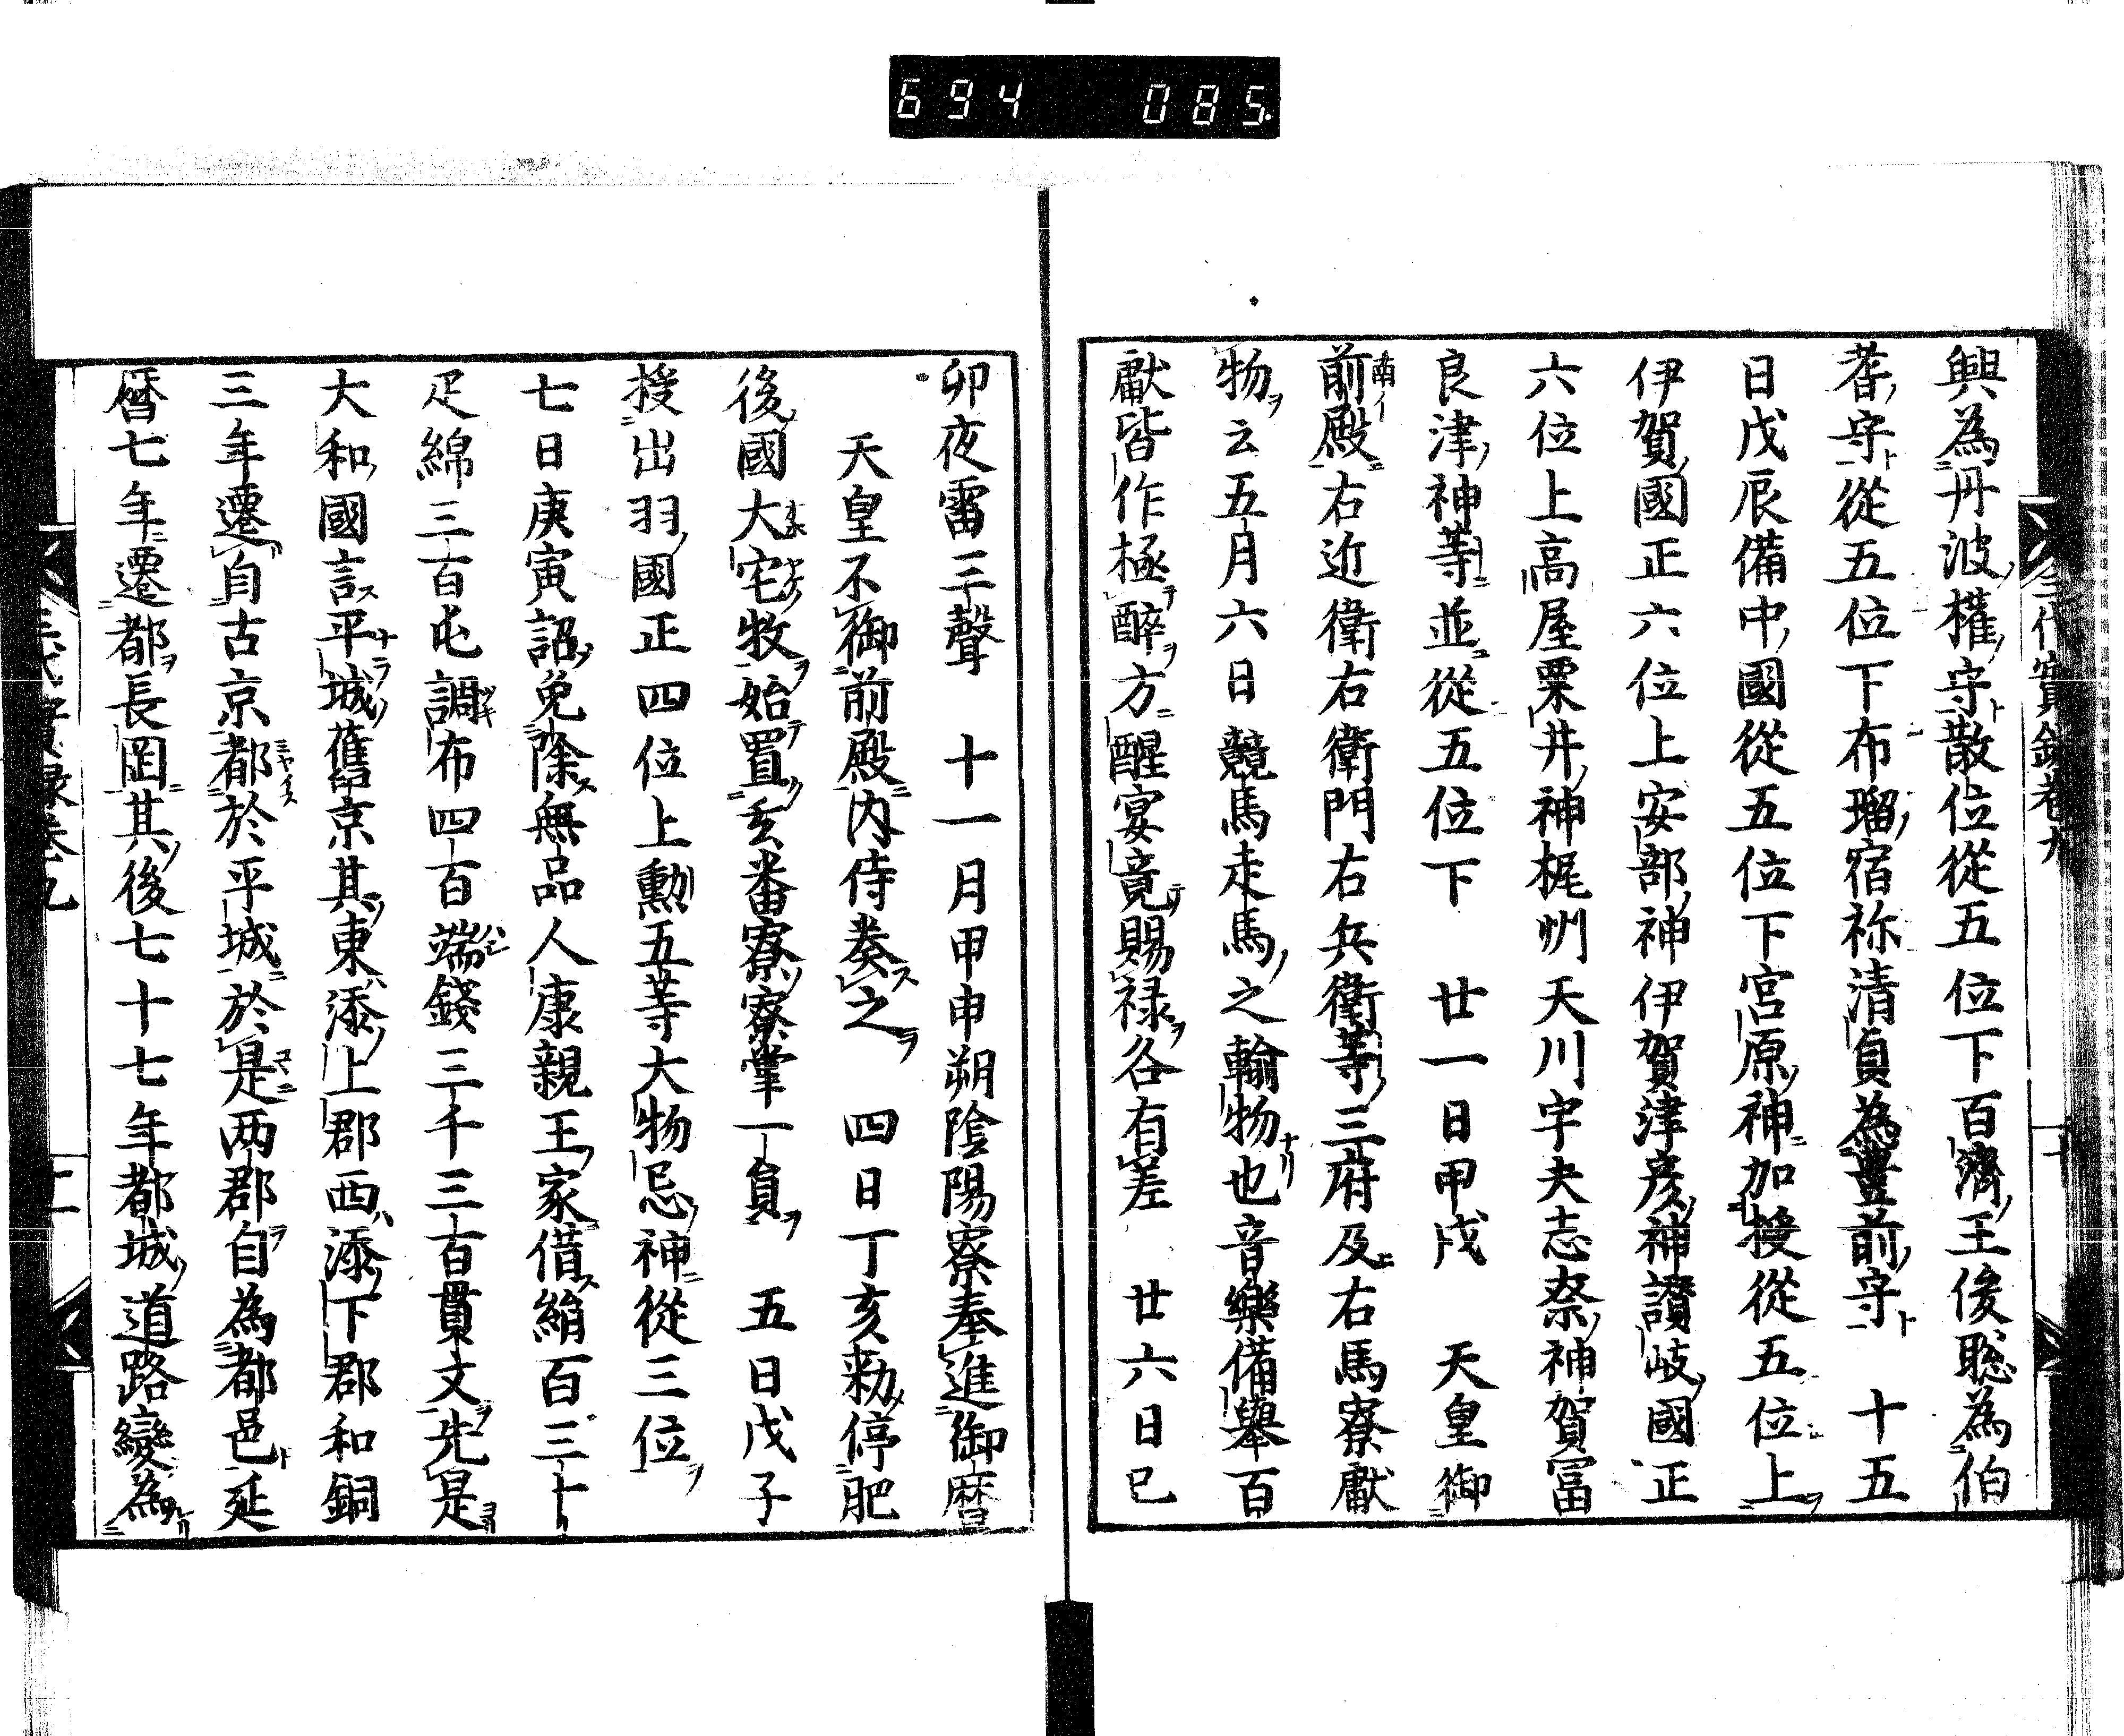 694 085
三代實録卷九
興為丹波權守散位從五位下百濟王俊聡為伯
耆守從五位下布瑠宿祢清貞為豊前守 十五
日戊辰備中國從五位下宮原神加授從五位上
伊賀國正六位上安部神伊賀津彦神讃岐國正
六位上高屋栗井神梶州天川宇夫志奈神賀冨
良津神等並從五位下 廿一日甲戌 天皇御
前殿右近衛右衛門右兵衛等三府及右馬寮獻
物云五月六日競馬走馬之輸物也音樂備舉百
獻皆作極醉方醒宴竟賜禄各有差 廿六日己
卯夜雷三聲 十一月甲申朔陰陽寮奉進御暦
天皇不御前殿内侍奏之 四日丁亥勑停肥
後國大宅牧始置玄番寮寮掌一負 五日戊子
授出羽國正四位上勳五等大物忌神從三位
七日庚寅詔免除無品人康親王家借絹百三十
疋綿三百屯調布四百端錢三千三百貫文先是
大和國言平城舊京其東添上郡西添下郡和銅
三年遷自古京都於平城於是两郡自為都邑延
暦七年遷都長岡其後七十七年都城道路變為
三代實録卷九